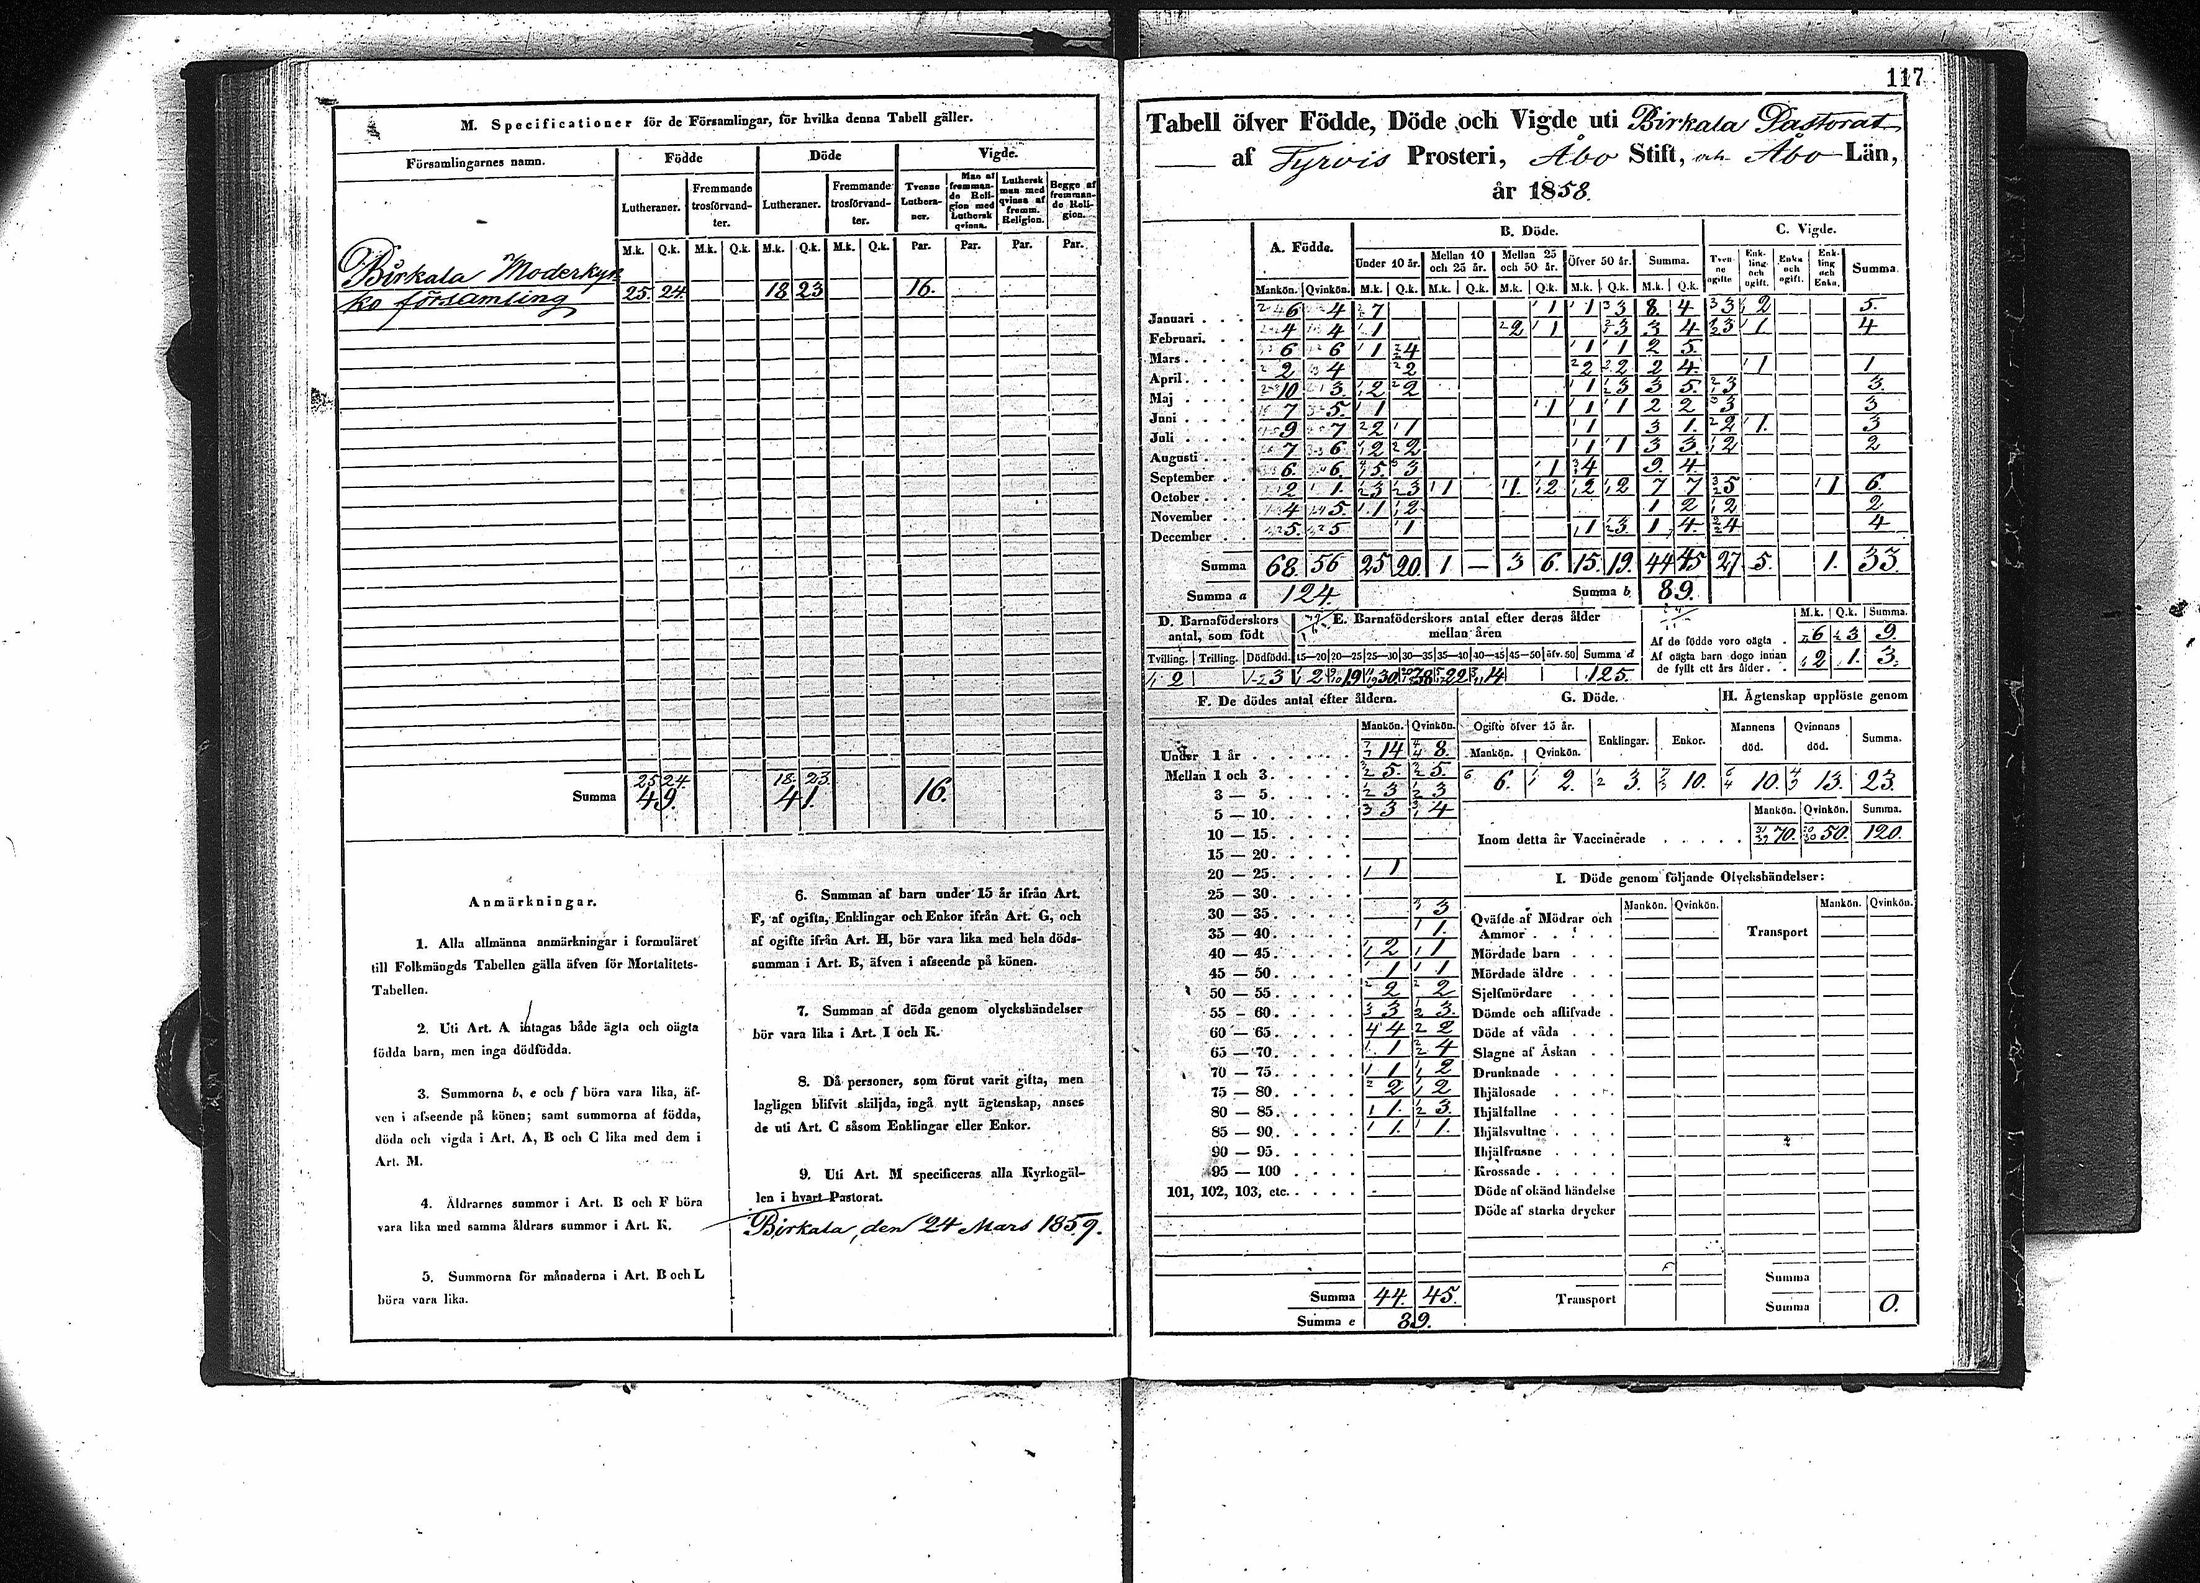 M. Specificationer för de Församlingar, för hvilka denna Tabell gäller.
Församlingarnes namn. Födde Döde Vigde.
Lutheraner. Fremmande trosförvandter. Lutheraner. Fremmande trosförvandter. Tvenne Lutheraner. Man af fremmande Religion med Luthersk qvinna. Luthersk man med qvinna af fremm. Religion. Begge af fremmande Religion.
M.k. Q.k. M.k. Q.k. M.k. Q.k. M.k. Q.k. Par. Par. Par. Par.
Birkala Moderkyr
ko församling 25. 24. 18 23 16.
25 24. 18. 23.
Summa 49. 41. 16.
Anmärkningar.
1. Alla allmänna anmärkningar i formuläret
till Folkmängds Tabellen gälla äfven för Mortalitets-
Tabellen.
2. Uti Art. A intagas både ägta och oägta
födda barn, men inga dödfödda.
3. Summorna b, e och f böra vara lika, äf-
ven i afseende på könen; samt summorna af födda,
döda och vigda i Art. A, B och C lika med dem i
Art. M.
4. Åldrarnes summor i Art. B och F böra
vara lika med samma åldrars summor i Art. K.
5. Summorna för månaderna i Art. B och L
böra vara lika.
6. Summan af barn under 15 år ifrån Art.
F, af ogifta, Enklingar och Enkor ifrån Art. G, och
af ogifte ifrån Art. H, bör vara lika med hela döds-
summan i Art. B, äfven i afseende på könen.
7. Summan af döda genom olyckshändelser
bör vara lika i Art. I och K.
8. Då personer, som förut varit gifta, men
lagligen blifvit skiljda, ingå nytt ägtenskap, anses
de uti Art. C såsom Enklingar eller Enkor.
9. Uti Art. M specificeras alla Kyrkogäl-
len i hvart Pastorat.
Birkala, den 24 Mars 1859.
117
Tabell öfver Födde, Döde och Vigde uti Birkala Pastorat
af Tyrvis Prosteri, Åbo Stift, och Åbo Län,
år 1858.
A. Födde. B. Döde. C. Vigde.
Under 10 år. Mellan 10 och 25 år. Mellan 25 och 50 år. Öfver 50 år. Summa. Tvenne ogifte Enkling och ogift. Enka och ogift. Enkling och Enka. Summa.
Mankön. Qvinkön. M.k. Q.k. M.k. Q.k. M.k. Q.k. M.k. Q.k. M.k. Q.k.
Januari 6 4 7 1 1 3 8 4 3 2 5.
Februari. 4 4 1 2 1 3 3 4 3 1 4
Mars 6 6 1 4 1 1 2 5.
April 2 4 2 2 2 2 4. 1 1
Maj 10 3. 2 2 1 3 3 5. 3 3.
Juni 7 5. 1 1 1 1 2 2 3 3
Juli 9 7 2 1 1 3 1. 2 1. 3
Augusti 7 6 2 2 1 1 3 3. 2 2
September 6 6 5 3 1 4 9. 4.
October 2 1. 3 3 1 1. 2 2 2 7 7 5 1 6.
November 4 5. 1 2 1 2 2 2
December 5. 5 1 1 3 1 4. 4 4
Summa 68. 56 25 20. 1 — 3 6. 15. 19. 44 45 27 5. 1. 33.
Summa a 124. Summa b 89.
D. Barnaföderskors antal, som födt E. Barnaföderskors antal efter deras ålder mellan åren M.k. Q.k. Summa.
Tvilling. Trilling. Dödfödd. 15—20 20—25 25—30 30—35 35—40 40—45 45—50 öfv. 50 Summa d
Af de födde voro oägta 6 3 9.
Af oägta barn dogo innan de fyllt ett års ålder 2 1. 3.
2 3 2 19 30 38 22 14 125.
F. De dödes antal efter åldern. G. Döde. H. Ägtenskap upplöste genom
Mankön. Qvinkön. Ogifte öfver 15 år. Enklingar. Enkor. Mannens död. Qvinnans död. Summa.
Mankön. Qvinkön.
6. 2. 3. 10. 10. 13. 23.
Mankön. Qvinkön. Summa.
Inom detta år Vaccinerade 70. 50. 120.
Under 1 år 14 8.
Mellan 1 och 3. 5. 5.
3 — 5. 3 3
5 — 10. 3 4
10 — 15.
15 — 20.
20 — 25. 1
25 — 30.
30 — 35. 3
35 — 40. 1.
40 — 45. 2 1
45 — 50. 1 1
50 — 55. 2 2
55 — 60. 3 3.
60 — 65. 4 2
65 — 70. 1 4
70 — 75. 1 2
75 — 80. 2 2
80 — 85. 1. 3.
85 — 90. 1. 1.
90 — 95.
95 — 100
101, 102, 103, etc.
Summa 44. 45.
Summa e 89.
I. Döde genom följande Olyckshändelser:
Mankön. Qvinkön. Mankön. Qvinkön.
Qväfde af Mödrar och Ammor Transport
Mördade barn
Mördade äldre
Sjelfmördare
Dömde och aflifvade
Döde af våda
Slagne af Åskan
Drunknade
Ihjälosade
Ihjälfallne
Ihjälsvultne
Ihjälfrusne
Krossade
Döde af okänd händelse
Döde af starka drycker
Summa
Transport Summa 0.